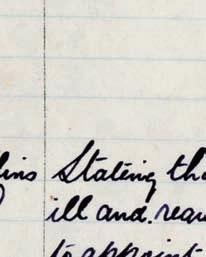 Stating tha
ill and. requ
to appoint